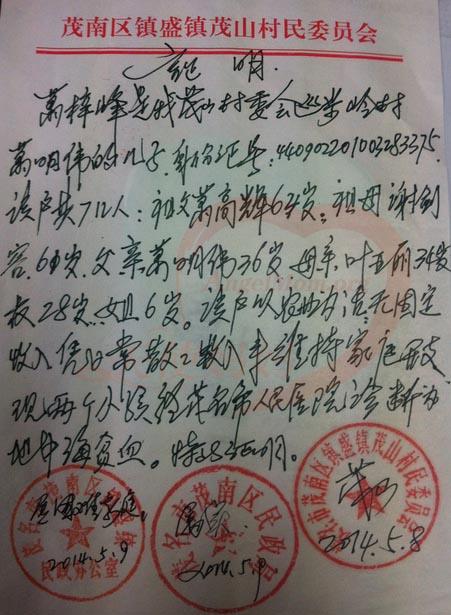 茂南区镇盛镇茂山村民委员会
证 明
萧梓峰是我茂山村委会边英岭村
萧明伟的儿子,身份证号:440902201003283375.
该户共7人:祖父萧高辉64岁;祖母谢
容64岁,父亲萧明伟36岁,母亲叶亚丽34岁
叔28岁,姐6岁。该户以农业为主,无固定
收入,凭日常散工收入来维持家庭开支
现两个小孩经茂名市人民医院诊断为
地中海贫血。特此证明。
2014.5.9
2014.5.9.
2014.5.8
茂名市茂南区镇盛镇
民政办公室
茂名市茂南区民政局
茂名市茂南区镇盛镇茂山村民委员会